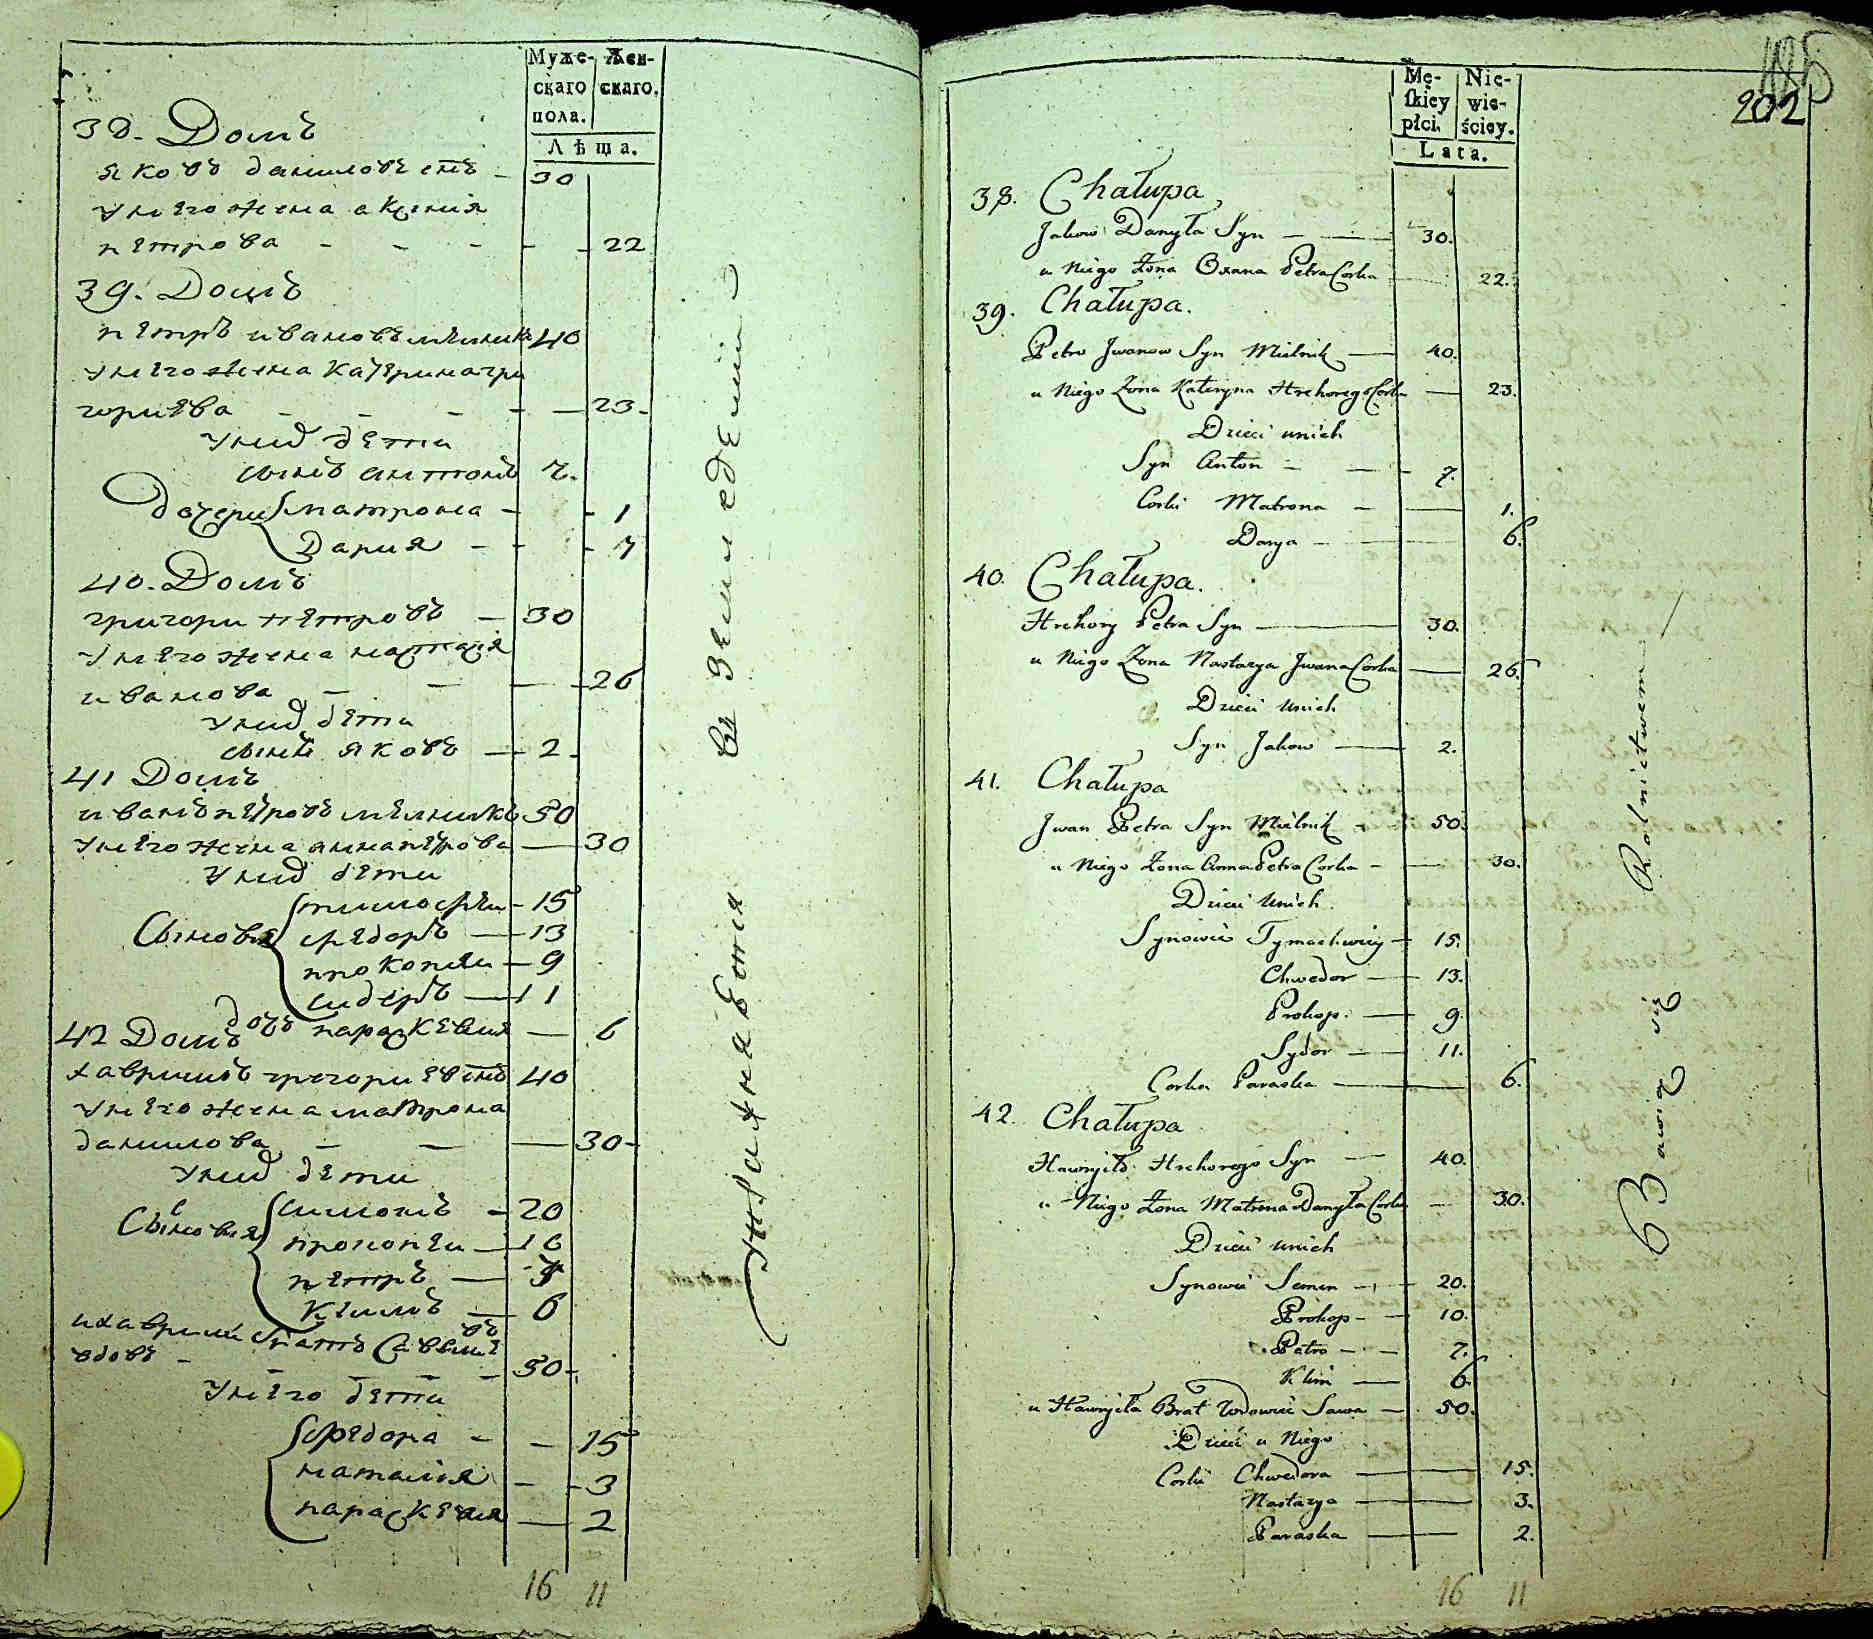 Муже-
скаго
пола.
Жен-
скаго.
Лѣта.
38. Домъ
яковъ даниловъ снъ - 30
унего жена аксения
петрова - - - 22
39. Домъ
петръ ивановъ мелникъ 40
унего жена катерина гри
гориева - - - 23
уних дети
сынъ антонъ 7.
дочери матрона - 1
Дария - 7
40. Домъ
григори петровъ - 30
унего жена настася
иванова - - - 26
уних дети
сынъ яковъ - 2
41 Домъ
иванъ петровъ мелникъ 50
унего жена анна петрова - 30
уних дети
Сыновя тимофеи - 15
федоръ - 13
прокопеи - 9
сидеръ - 11
дочь параскевия - 6
42 Домъ
хаврилъ григориевснъ 40
унего жена матрона
данилова - - 30
уних дети
Сыновя симонъ - 20
прокопеи - 10
петръ - 7
Климъ - 6
ухаврили братъ Савва
вдовъ - - 50
унего дети
федора - 15
наталия - 3
параскевия - 2
16 11
упражняются въ земледелии
202
Mę-
skiey
płci.
Nie-
wie-
ściey.
Lata.
38. Chałupa
Jakow Danyła Syn — 30.
u Niego Żona Oxana Petra Corka 22.
39. Chałupa.
Petro Jwanow Syn Mielnik — 40.
u Niego Żona Kateryna Hrehorego Corka — 23.
Dzieci unich
Syn Anton - — 7.
Corki Matrona - — 1.
Darya - — 6.
40. Chałupa.
Hrehory Petra Syn — 30.
u Niego Żona Nastazya Jwana Corka — 26.
Dzieci Unich
Syn Jakow — 2.
41. Chałupa
Jwan Petra Syn Mielnik - 50.
u Niego Żona Anna Petra Corka - — 30.
Dzieci Unich.
Synowie Tymochwiey - 15.
Chwedor — 13.
Prokop. — 9.
Sydor — 11.
Corka Paraska — 6.
42. Chałupa
Hawryło Hrehorego Syn — 40.
u Niego Żona Matrona Danyła Corka — 30.
Dzieci unich
Synowie Semen - — 20.
Prokop - — 10.
Petro - — 7.
Klim — 6.
u Hawryła Brat Wdowiec Sawa — 50.
Dzieci u Niego
Corki Chwedora — 15.
Nastazya — 3.
Paraska — 2.
16 11
Bawią się Rolnictwem